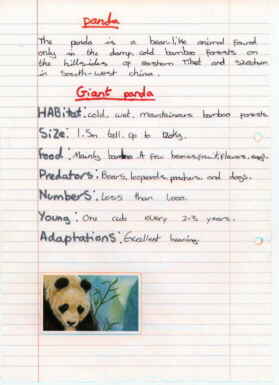 panda
The panda is a bear like animal found
only in the damp, cold bamboo forests on
the hillsides of eastern Tibet and
in South-west china.
Giant panda
HABitat: cold, wet, mountainous bamboo forests.
Size: 1.5m tall. Up to 120kg.
Food: Mainly bamboo. A few berries, fruit, flowers, eggs.
Predators: Bears, leopards, panthers, and dogs.
Numbers: Less than 1,000.
Young: One cub every 2-3 years.
Adaptations: Excellent hearing.